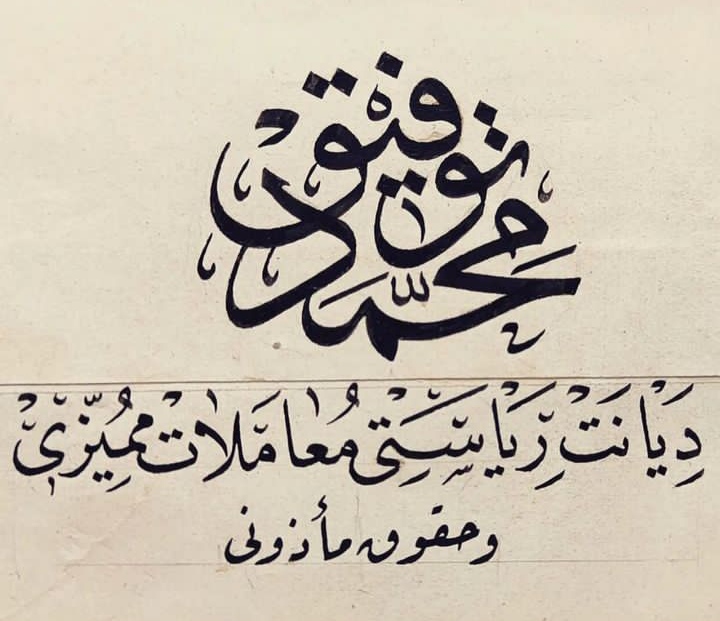 محمد توفيق
دِيَانَتْ رِيَاسَتِى مُعَامَلَاتْ مُمَيِّزِى
وحقوق مأذونى